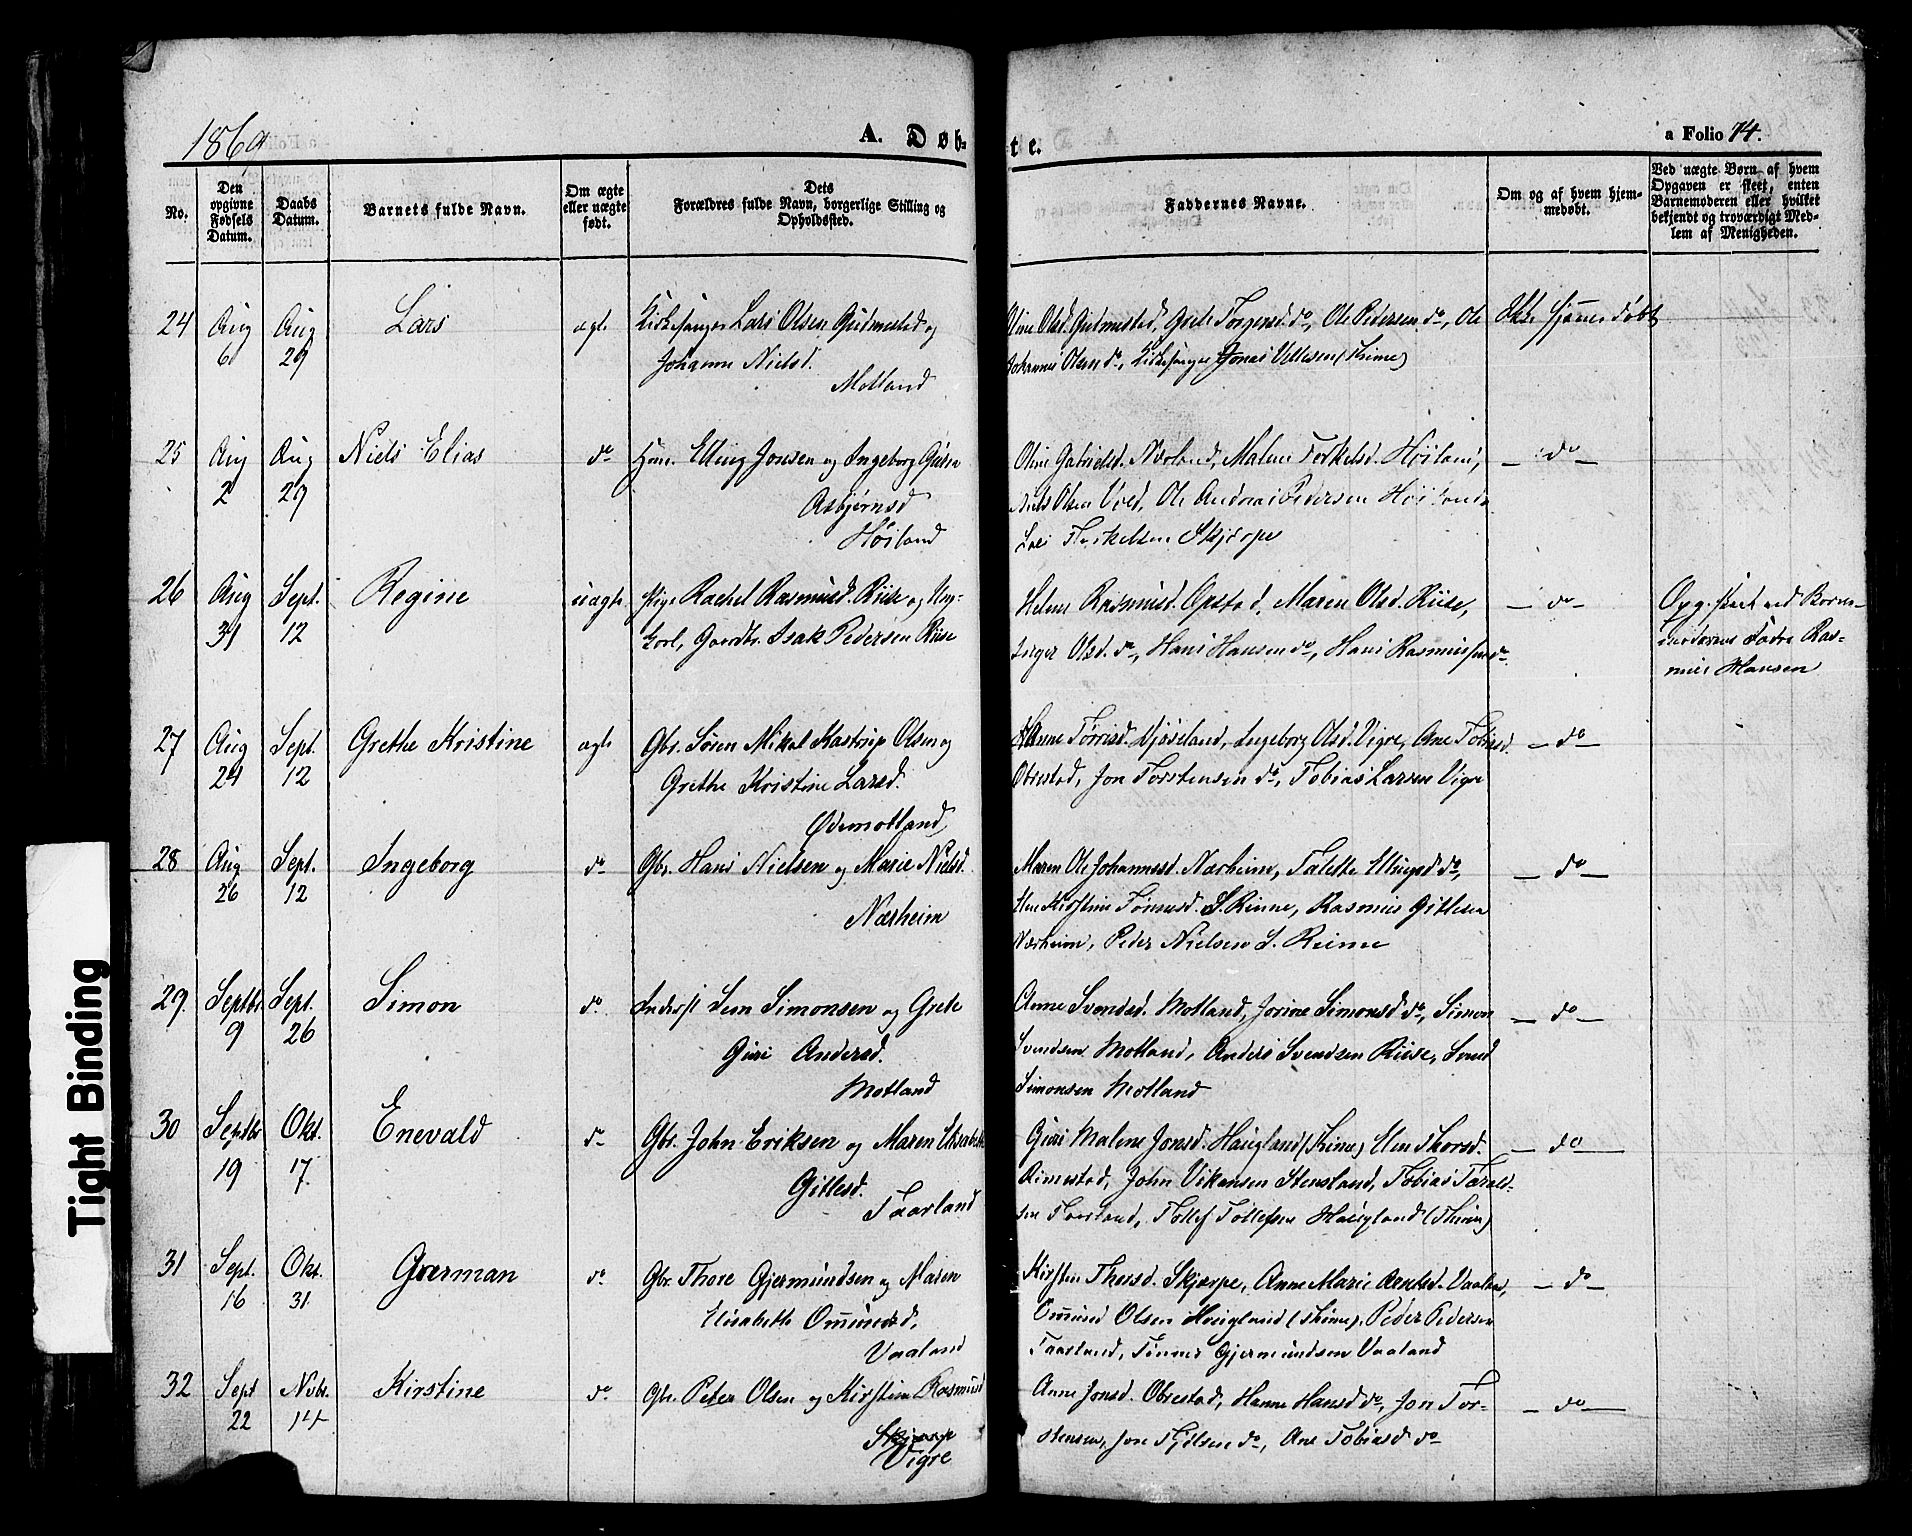 1869 A. Døb-
te. a Folio 74.
No. Den opgivne Fødsels Datum. Daabs Datum. Barnets fulde Navn. Om ægte eller uægte født. Dets Forældres fulde Navn, borgerlige Stilling og Opholdssted.
Faddernes Navne. Om og af hvem hjemmedøbt. Ved uægte Børn af hvem Opgaven er skeet, enten Barnemoderen eller hvilket bekjendt og troværdigt Medlem af Menigheden.
24 Aug 6 Aug 29 Lars ægte Kirkesanger Lars Olsen Gudmestad og
Johanne Nielsd.
Motland
Oline Olsd. Gudmestad, Grete Torgersd. do, Ole Pedersen do, Ole Ikke hjemmedøbt
Johannes Olsen do, Kirkesanger Jonas Vellesen (Thime)
25 Aug 2 Aug 29 Niels Elias do Hmd. Elling Jonsen og Ingeborg Gurine
Asbjørnsd
Høiland
Oline Gabrielsd. Nærland, Malene Torkelsd. Høiland, — do —
Niels Olsen Vold, Ole Andreas Pedersen Høiland
Lars Torkelsen Skjærpe
26 Aug 31 Sept. 12 Regine uægte Pige Rachel Rasmusd. Riise og Ung-
karl, Gaardbr. Isak Pedersen Riise
Helene Rasmusd. Opstad, Maren Olsd. Riise, — do — Opg. skeet ved Barne-
Inger Olsd. do, Hans Hansen do, Hans Rasmussen do moderens Fader Ras-
mus Hansen
27 Aug 24 Sept. 12 Grethe Kristine ægte Gbr. Søren Mikal Kastrup Olsen og
Grethe Kristine Larsd.
Ødemotland
Hanne Tørrisd. Njæseland, Ingeborg Olsd. Vigre, Ane Tobiasd. — do —
Obrestad, Jon Torstensen do, Tobias Larsen Vigre
28 Aug 26 Sept. 12 Ingeborg do Gbr. Hans Nielsen og Marie Nielsd.
Nærheim
Maren Ole Johannesd. Nærheim, Talette Ellingsd do, — do —
Elen Kirstine Tønnesd. S. Reime, Rasmus Gitlesen
Nærheim, Peder Nielsen S. Reime
29. Septbr. 9 Sept. 26 Simon do Inderst Sven Simonsen og Grete
Guri Andersd.
Motland
Anne Svendsd. Motland, Jorine Simonsd do, Simon — do —
Svendsen Motland, Anders Svendsen Riise, Svend
Simonsen Motland
30 Septbr 19 Okt. 17. Enevald do Gbr. John Eriksen og Maren Elisabeth
Gitlesd.
Taarland
Guri Malene Jonsd. Haugland (Thime) Elen Thorsd. — do —
Rimestad, John Vikansen Stensland, Tobias Tarald-
sen Taarland, Tollef Tollefsen Haugland (Thime)
31 Sept. 16 Okt. 31. Gjerman do Gbr. Thore Gjermundsen og Maren
Elisabeth Omundsd.
Vaaland
Kirsten Thorsd. Skjærpe, Anne Marie Arntsd. Vaaland, — do —
Omund Olsen Haugland (Thime), Peder Pedersen
Taarland, Tønnes Gjermundsen Vaaland
32 Sept 22 Novbr. 14 Kirstine do Gbr. Peter Olsen og Kirstine Rasmusd
Skjærpe
Vigre
Anne Jonsd. Obrestad, Hanne Hansd do, Jon Tor- — do —
stensen, Jon Tjelsen do, Ane Tobiasd do
Tight Binding